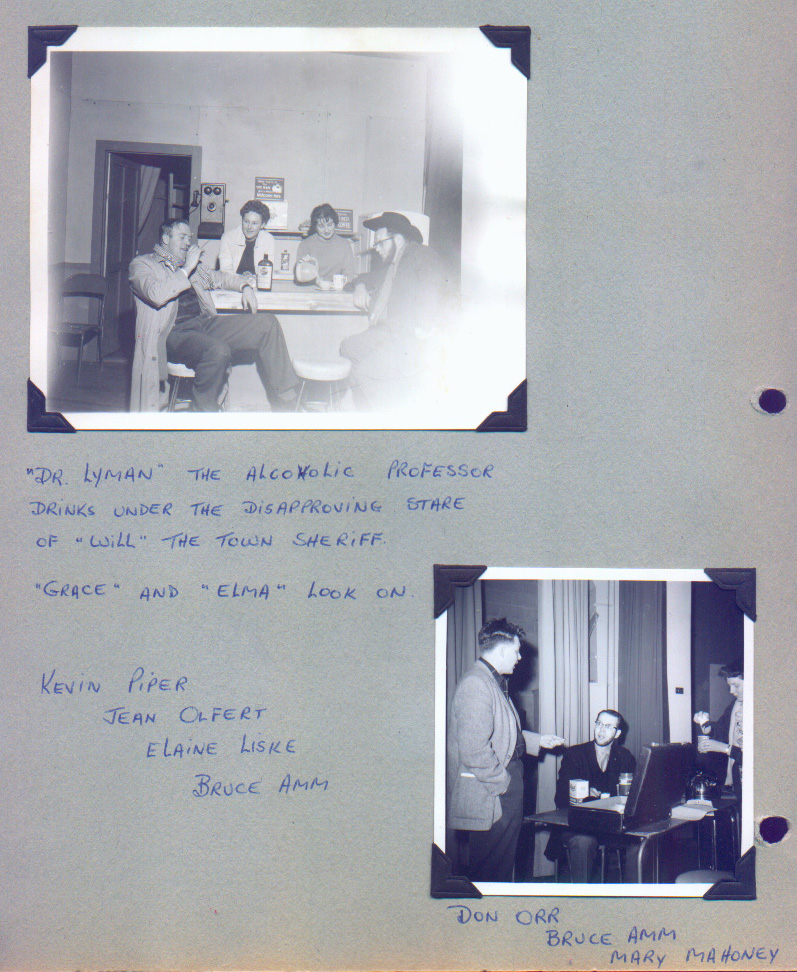 "DR. LYMAN" THE ALCOHOLIC PROFESSOR
DRINKS UNDER THE DISAPPROVING STARE
OF "WILL" THE TOWN SHERIFF.
"GRACE" AND "ELMA" LOOK ON.
KEVIN PIPER
JEAN OLFERT
ELAINE LISKE
BRUCE AMM
DON ORR
BRUCE AMM
MARY MAHONEY